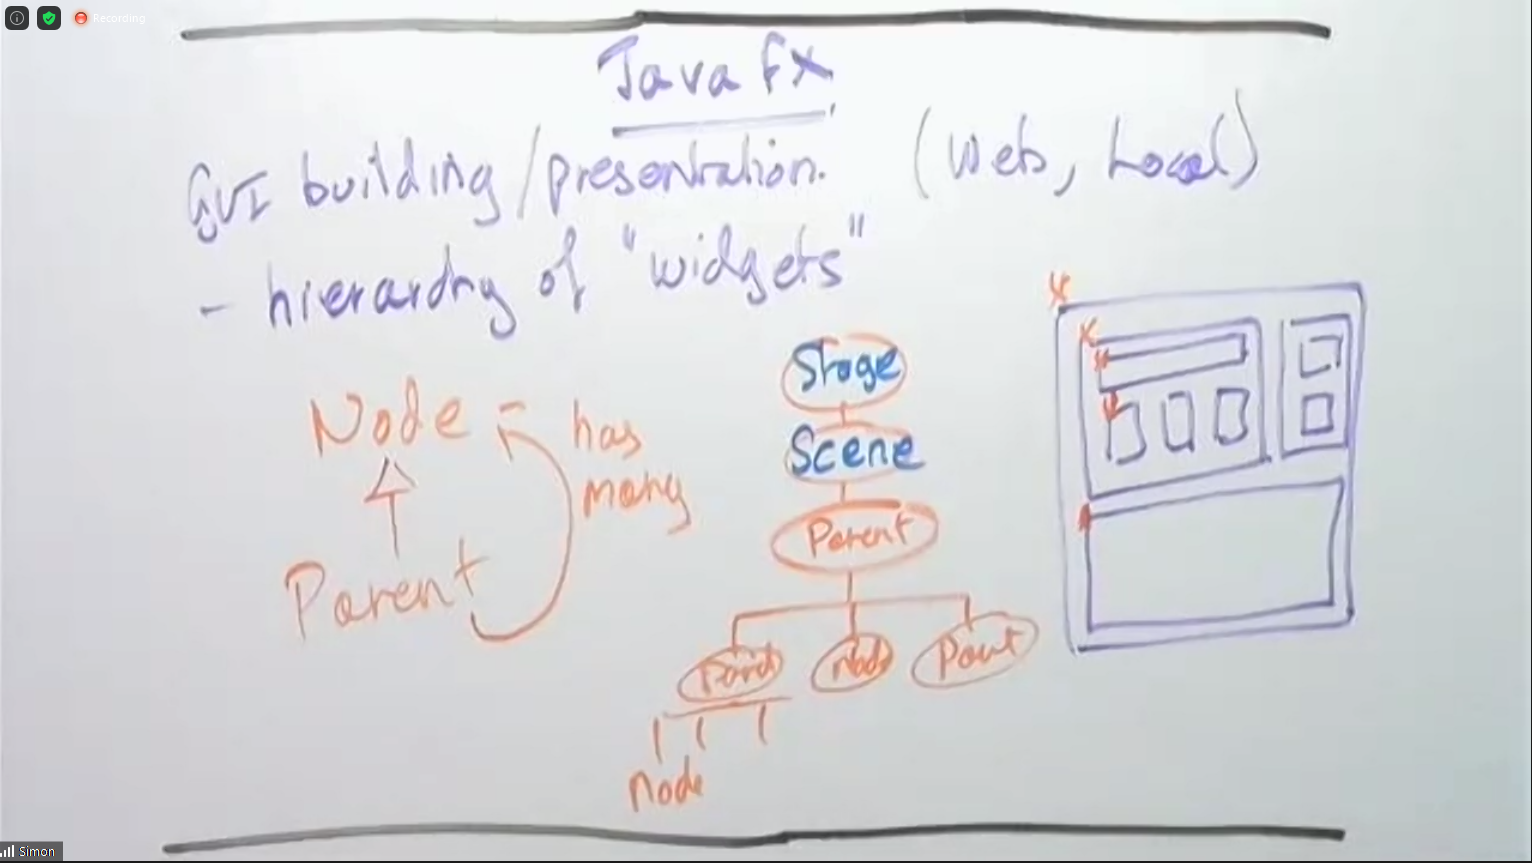 Recording
Java FX
GUI building/presentation. (Web, Local)
- hierarchy of "widgets"
Node
has
many
Parent
Stage
Scene
Parent
Parent
Node
Parent
Node
Simon